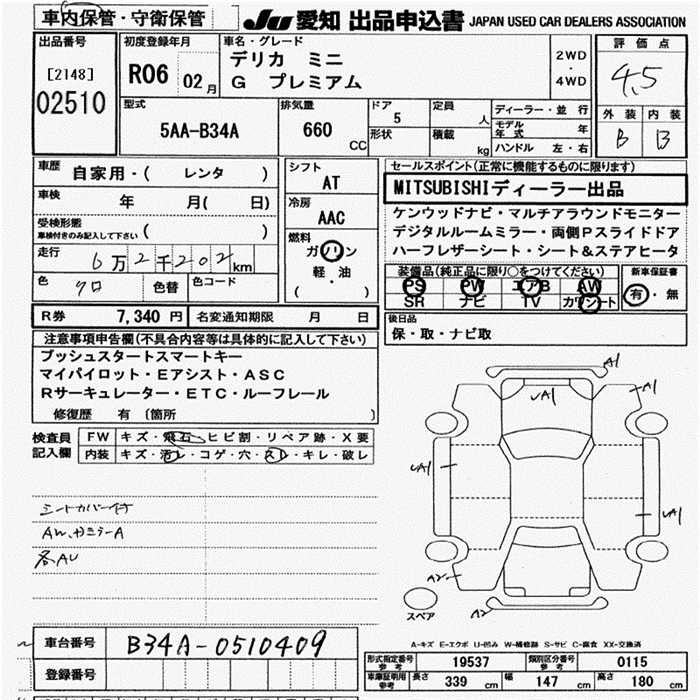 車内保管・守衛保管
JU 愛知 出品申込書 JAPAN USED CAR DEALERS ASSOCIATION
出品番号
[2148]
02510
初度登録年月
R06 02月
車名・グレード
デリカ ミニ
G プレミアム
2WD
・
4WD
評価点
4.5
外装 内装
B B
型式
5AA-B34A
排気量
660
CC
ドア
5
形状
定員
人
積載
kg
ディーラー・並行
モデル年式 年
ハンドル 左・右
車歴
自家用・( レンタ )
車検
年 月( 日)
受検形態
車検付きのみ記入して下さい ( )
走行
6万2千202km
色
クロ
色替
色コード
シフト
AT
冷房
AAC
燃料
ガソリン
軽・油
( )
セールスポイント(正常に機能するものに限ります)
MITSUBISHIディーラー出品
ケンウッドナビ・マルチアラウンドモニター
デジタルルームミラー・両側Pスライドドア
ハーフレザーシート・シート&ステアヒータ
装備品(純正品に限り○をつけてください)
PS PW エアB AW
SR ナビ TV カワシート
新車保証書
有・無
R券 7,340 円 名変通知期限 月 日
後日品
保・取・ナビ取
注意事項申告欄(不具合内容等は具体的に記入して下さい)
プッシュスタートスマートキー
マイパイロット・Eアシスト・ASC
Rサーキュレーター・ETC・ルーフレール
修復歴 有 〔箇所 〕
検査員
記入欄
FW キズ・飛石・ヒビ割・リペア跡・X要
内装 キズ・汚レ・コゲ・穴・スレ・キレ・破レ
シートカバー付
AW、カミラーA
各AU
A1
A1
UA1
UA1
UA1
A2
A2
スペア
A-キズ E-エクボ U-凹み W-補修跡 S-サビ C-腐食 XX-交換済
車台番号
B34A-0510409
登録番号
形式指定番号 参考 19537 類別区分番号 参考 0115
車庫証明用 参考 長さ 339 cm 幅 147 cm 高さ 180 cm